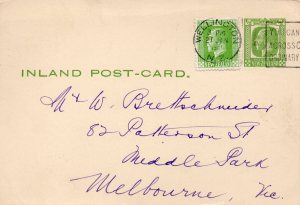 WELLINGTON
INLAND POST-CARD.
Mr W. Brettschneider
82 Patterson St
Middle Park
Melbourne, Vic.